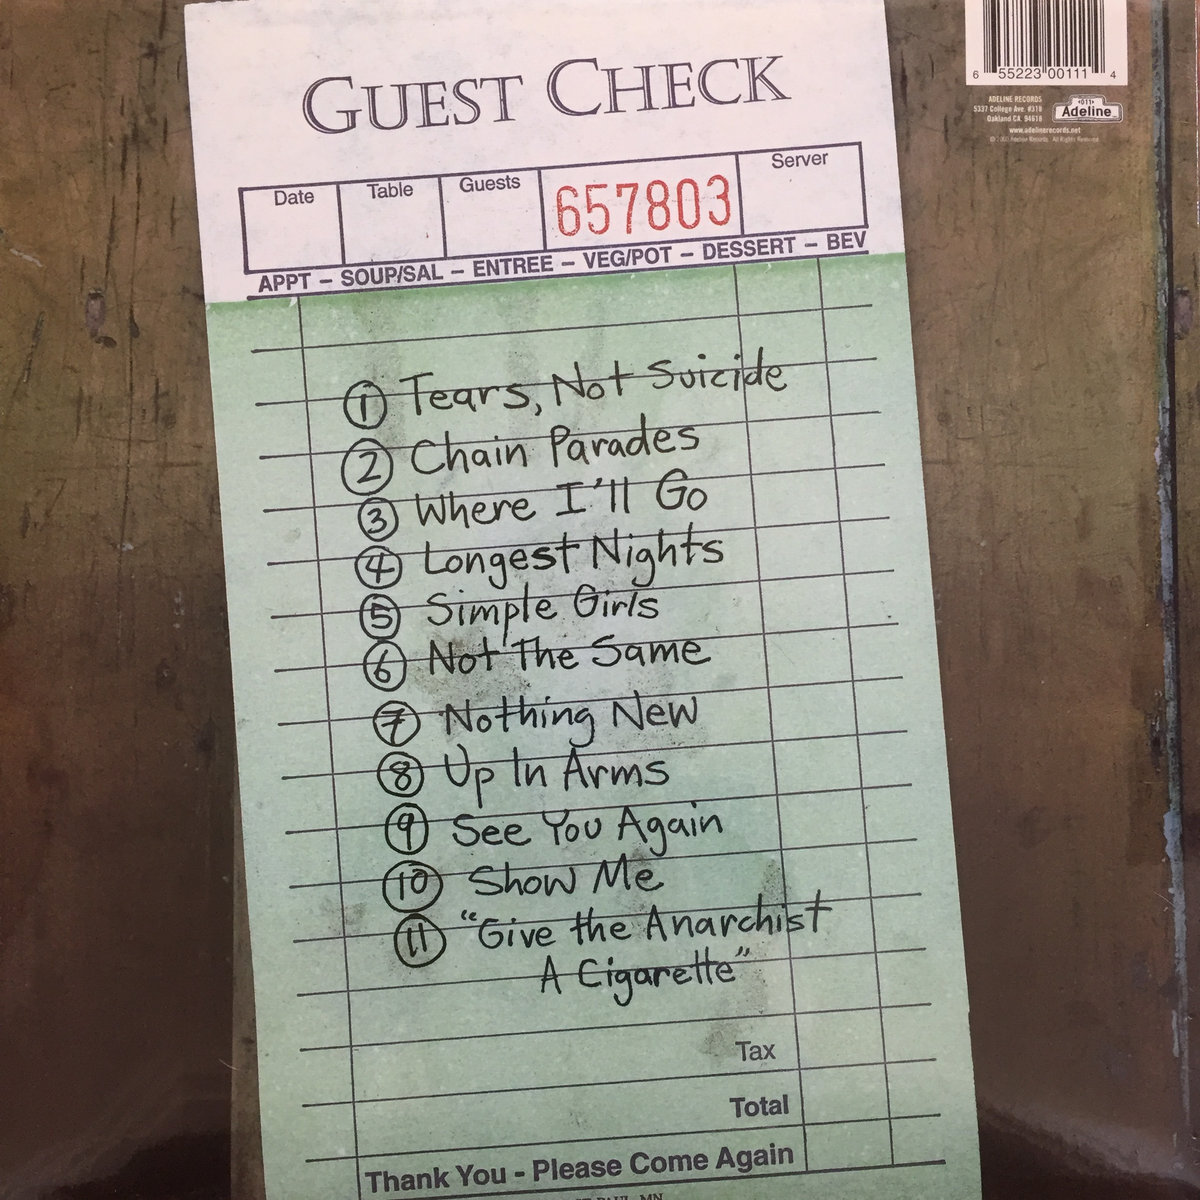 6 55223 00111 4
ADELINE RECORDS
5337 College Ave. #318
Oakland CA. 94618
www.adelinerecords.net
© 2000 Adeline Records. All Rights Reserved.
<011>
Adeline
GUEST CHECK
Date Table Guests 657803 Server
APPT – SOUP/SAL – ENTREE – VEG/POT – DESSERT – BEV
① Tears, Not Suicide
② Chain Parades
③ Where I'll Go
④ Longest Nights
⑤ Simple Girls
⑥ Not The Same
⑦ Nothing New
⑧ Up In Arms
⑨ See You Again
⑩ Show Me
⑪ "Give the Anarchist
A Cigarette"
Tax
Total
Thank You - Please Come Again
PAUL, MN